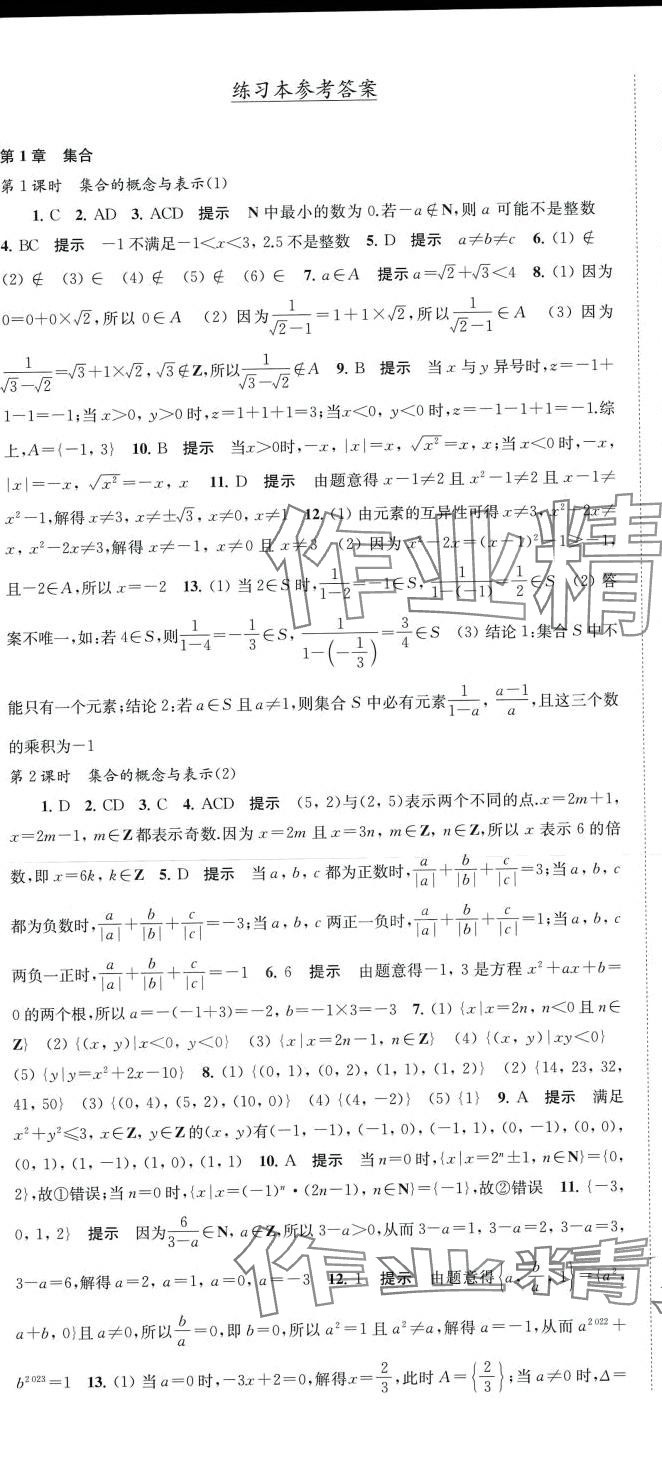 练习本参考答案
第1章　集合
第1课时　集合的概念与表示(1)
1. C　2. AD　3. ACD　提示　N中最小的数为0.若-a∉N,则a可能不是整数
4. BC　提示　-1不满足-1<x<3, 2.5不是整数　5. D　提示　a≠b≠c　6. (1) ∉
(2) ∉　(3) ∈　(4) ∉　(5) ∉　(6) ∈　7. a∈A　提示 a=√2+√3<4　8. (1) 因为
0=0+0×√2,所以0∈A　(2) 因为1/(√2-1)=1+1×√2,所以1/(√2-1)∈A　(3) 因为
1/(√3-√2)=√3+1×√2, √3∉Z,所以1/(√3-√2)∉A　9. B　提示　当x与y异号时,z=-1+
1-1=-1;当x>0, y>0时,z=1+1+1=3;当x<0, y<0时,z=-1-1+1=-1.综
上,A={-1, 3}　10. B　提示　当x>0时,-x, |x|=x, √x²=x, x;当x<0时,-x,
|x|=-x, √x²=-x, x　11. D　提示　由题意得x-1≠2且x²-1≠2且x-1≠
x²-1,解得x≠3, x≠±√3, x≠0, x≠1　12. (1) 由元素的互异性可得x≠3, x²-2x≠
x, x²-2x≠3,解得x≠-1, x≠0且x≠3　(2) 因为x²-2x=(x-1)²-1≥-1,
且-2∈A,所以x=-2　13. (1) 当2∈S时,1/(1-2)=-1∈S, 1/(1-(-1))=1/2∈S　(2) 答
案不唯一,如:若4∈S,则1/(1-4)=-1/3∈S, 1/(1-(-1/3))=3/4∈S　(3) 结论1:集合S中不
能只有一个元素;结论2:若a∈S且a≠1,则集合S中必有元素1/(1-a), (a-1)/a,且这三个数
的乘积为-1
第2课时　集合的概念与表示(2)
1. D　2. CD　3. C　4. ACD　提示　(5, 2)与(2, 5)表示两个不同的点.x=2m+1,
x=2m-1, m∈Z都表示奇数.因为x=2m且x=3n, m∈Z, n∈Z,所以x表示6的倍
数,即x=6k, k∈Z　5. D　提示　当a, b, c都为正数时,a/|a|+b/|b|+c/|c|=3;当a, b, c
都为负数时,a/|a|+b/|b|+c/|c|=-3;当a, b, c两正一负时,a/|a|+b/|b|+c/|c|=1;当a, b, c
两负一正时,a/|a|+b/|b|+c/|c|=-1　6. 6　提示　由题意得-1, 3是方程x²+ax+b=
0的两个根,所以a=-(-1+3)=-2, b=-1×3=-3　7. (1) {x|x=2n, n<0且n∈
Z}　(2) {(x, y)|x<0, y<0}　(3) {x|x=2n-1, n∈Z}　(4) {(x, y)|xy<0}
(5) {y|y=x²+2x-10}　8. (1) {(0, 1), (0, 2), (1, 1), (1, 2)}　(2) {14, 23, 32,
41, 50}　(3) {(0, 4), (5, 2), (10, 0)}　(4) {(4, -2)}　(5) {1}　9. A　提示　满足
x²+y²≤3, x∈Z, y∈Z的(x, y)有(-1, -1), (-1, 0), (-1, 1), (0, -1), (0, 0),
(0, 1), (1, -1), (1, 0), (1, 1)　10. A　提示　当n=0时,{x|x=2ⁿ±1, n∈N}={0,
2},故①错误;当n=0时,{x|x=(-1)ⁿ·(2n-1), n∈N}={-1},故②错误　11. {-3,
0, 1, 2}　提示　因为6/(3-a)∈N, a∈Z,所以3-a>0,从而3-a=1, 3-a=2, 3-a=3,
3-a=6,解得a=2, a=1, a=0, a=-3　12. 1　提示　由题意得{a, b/a, 1}={a²,
a+b, 0}且a≠0,所以b/a=0,即b=0,所以a²=1且a²≠a,解得a=-1,从而a²⁰²²+
b²⁰²³=1　13. (1) 当a=0时,-3x+2=0,解得x=2/3,此时A={2/3};当a≠0时,Δ=
作业精
作业精